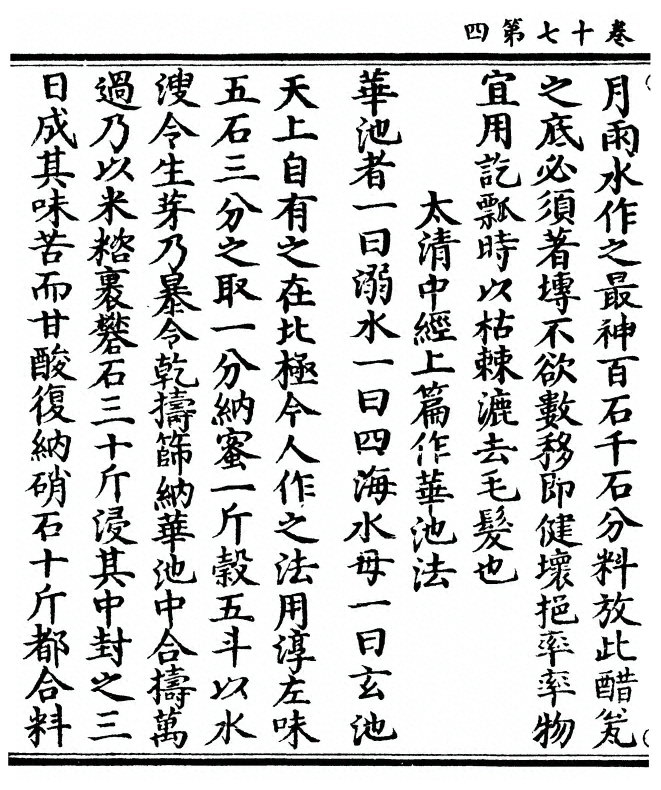 卷十七第四
月雨水作之最神百石千石分料放此醋瓮
之底必須著塼不欲數移即健壞挹率率物
宜用訖瓢時以枯棘漉去毛髮也
太清中經上篇作華池法
華池者一曰溺水一曰四海水毋一曰玄池
天上自有之在比極今人作之法用淳左味
五石三分之取一分納蜜一斤穀五斗以水
溲令生芽乃暴令乾擣篩納華池中合擣萬
過乃以米糌裹礬石三十斤浸其中封之三
日成其味苦而甘酸復納硝石十斤都合料